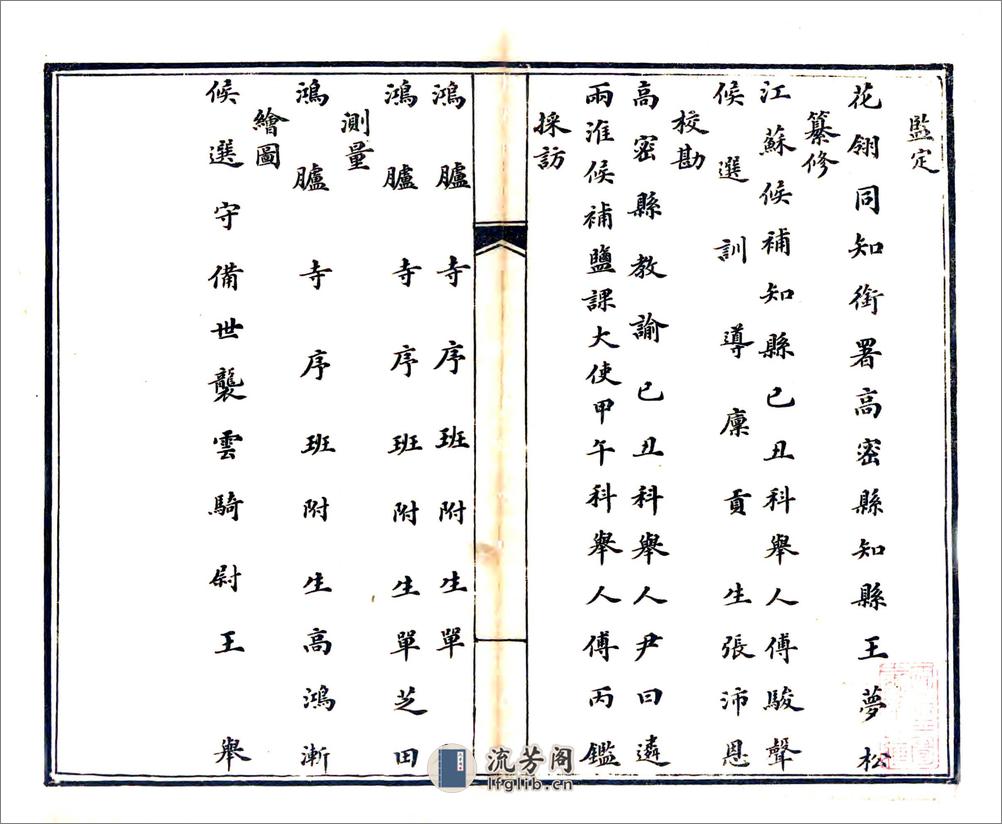 監定
花翎同知銜署高密縣知縣王夢松
纂修
江蘇候補知縣己丑科舉人傅駿聲
候選訓導廩貢生張沛恩
校勘
高密縣教諭己丑科舉人尹曰遴
兩淮候補鹽課大使甲午科舉人傅丙鑑
採訪
鴻臚寺序班附生單
鴻臚寺序班附生單芝田
測量
鴻臚寺序班附生高鴻漸
繪圖
候選守備世襲雲騎尉王舉
流芳阁
lfglib.cn